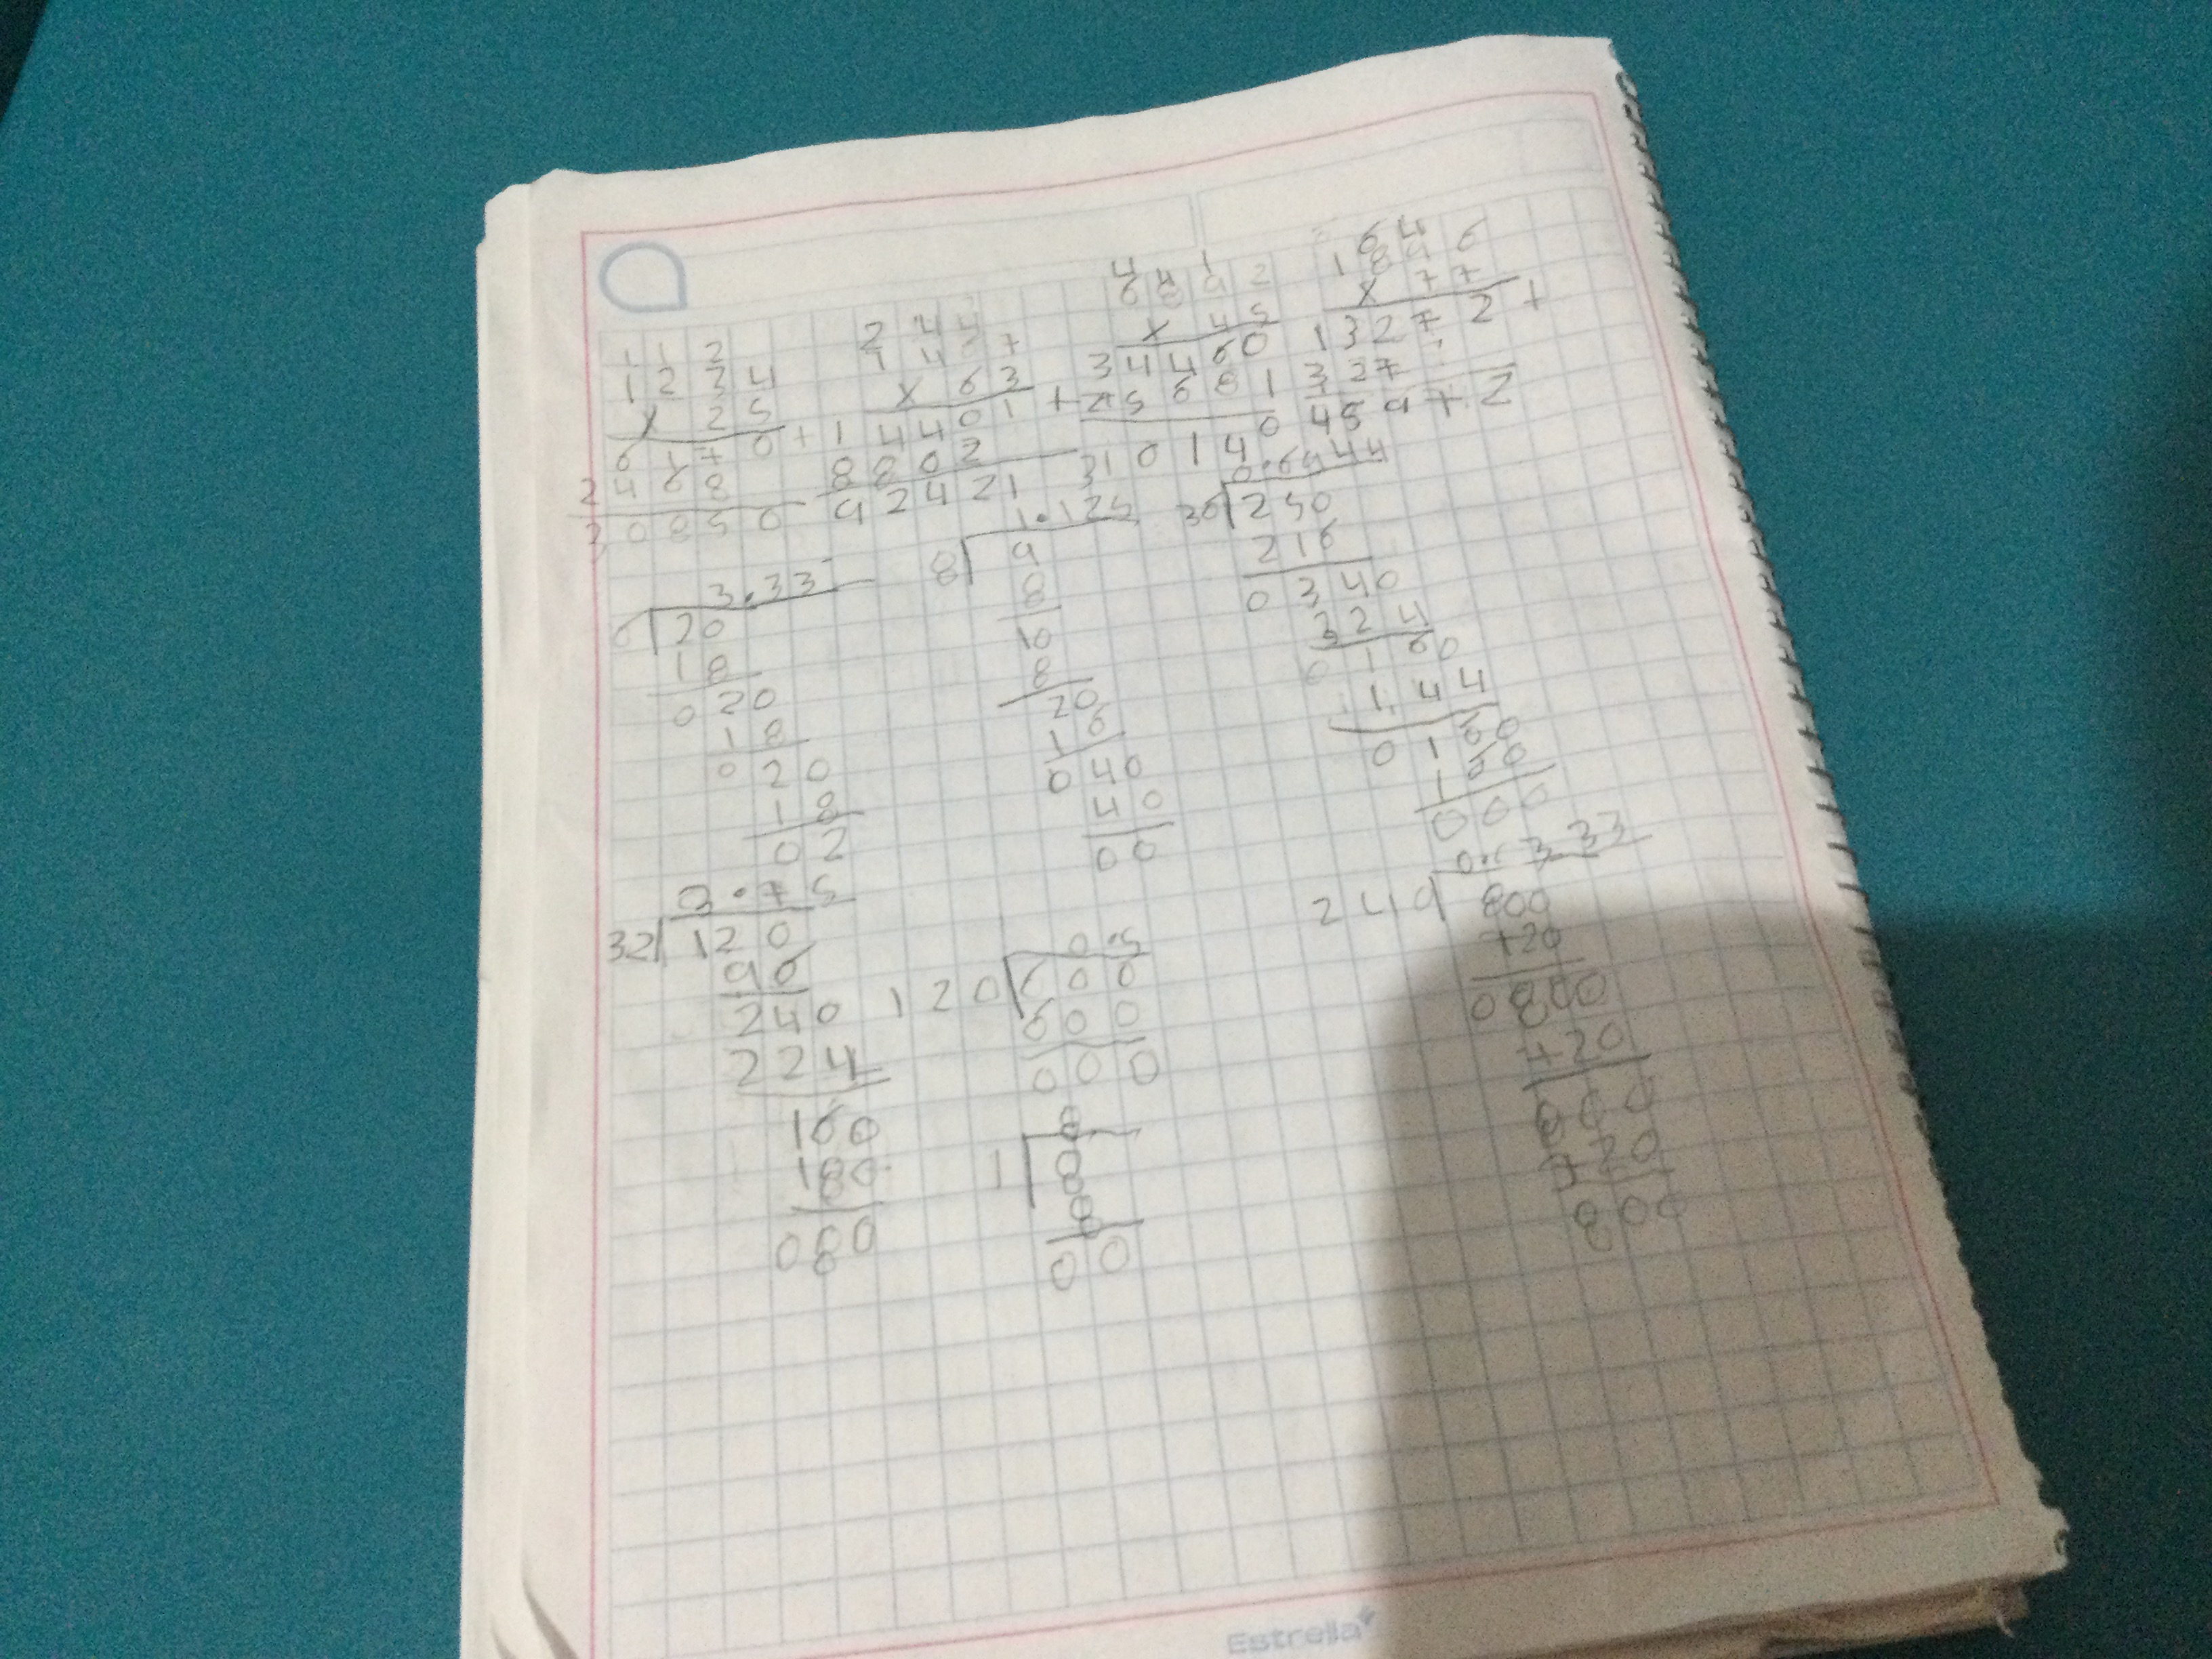 1 1 2
1 2 3 4
x 2 5
6 1 7 0
2 4 6 8
3 0 8 5 0
2 4 4
1 4 6 7
x 6 3
+ 1 4 4 0 1
8 8 0 2
9 2 4 2 1
4 4 1
6 8 9 2
x 4 5
3 4 4 6 0
+ 2 5 6 8 1
3 1 0 1 4 0
6 4
1 8 9 6
x 7 7
1 3 2 7 2 +
1 3 2 7
4 5 9 7 2
3.33
6 20
18
0 2 0
1 8
0 2 0
1 8
0 2
1.125
8 9
8
10
8
20
16
0 4 0
4 0
0 0
0.6944
36 250
216
0 3 4 0
3 2 4
0 1 6 0
1 4 4
0 1 6 0
0 0 0
3.75
32 120
96
240
224
160
180
0.5
1 2 0 6 0 0
6 0 0
0 0 0
8
1 8
8
0 0
3 33
800
720
0 8 0 0
7 2 0
8 0 0
7 2 0
8 0 0
Estrella